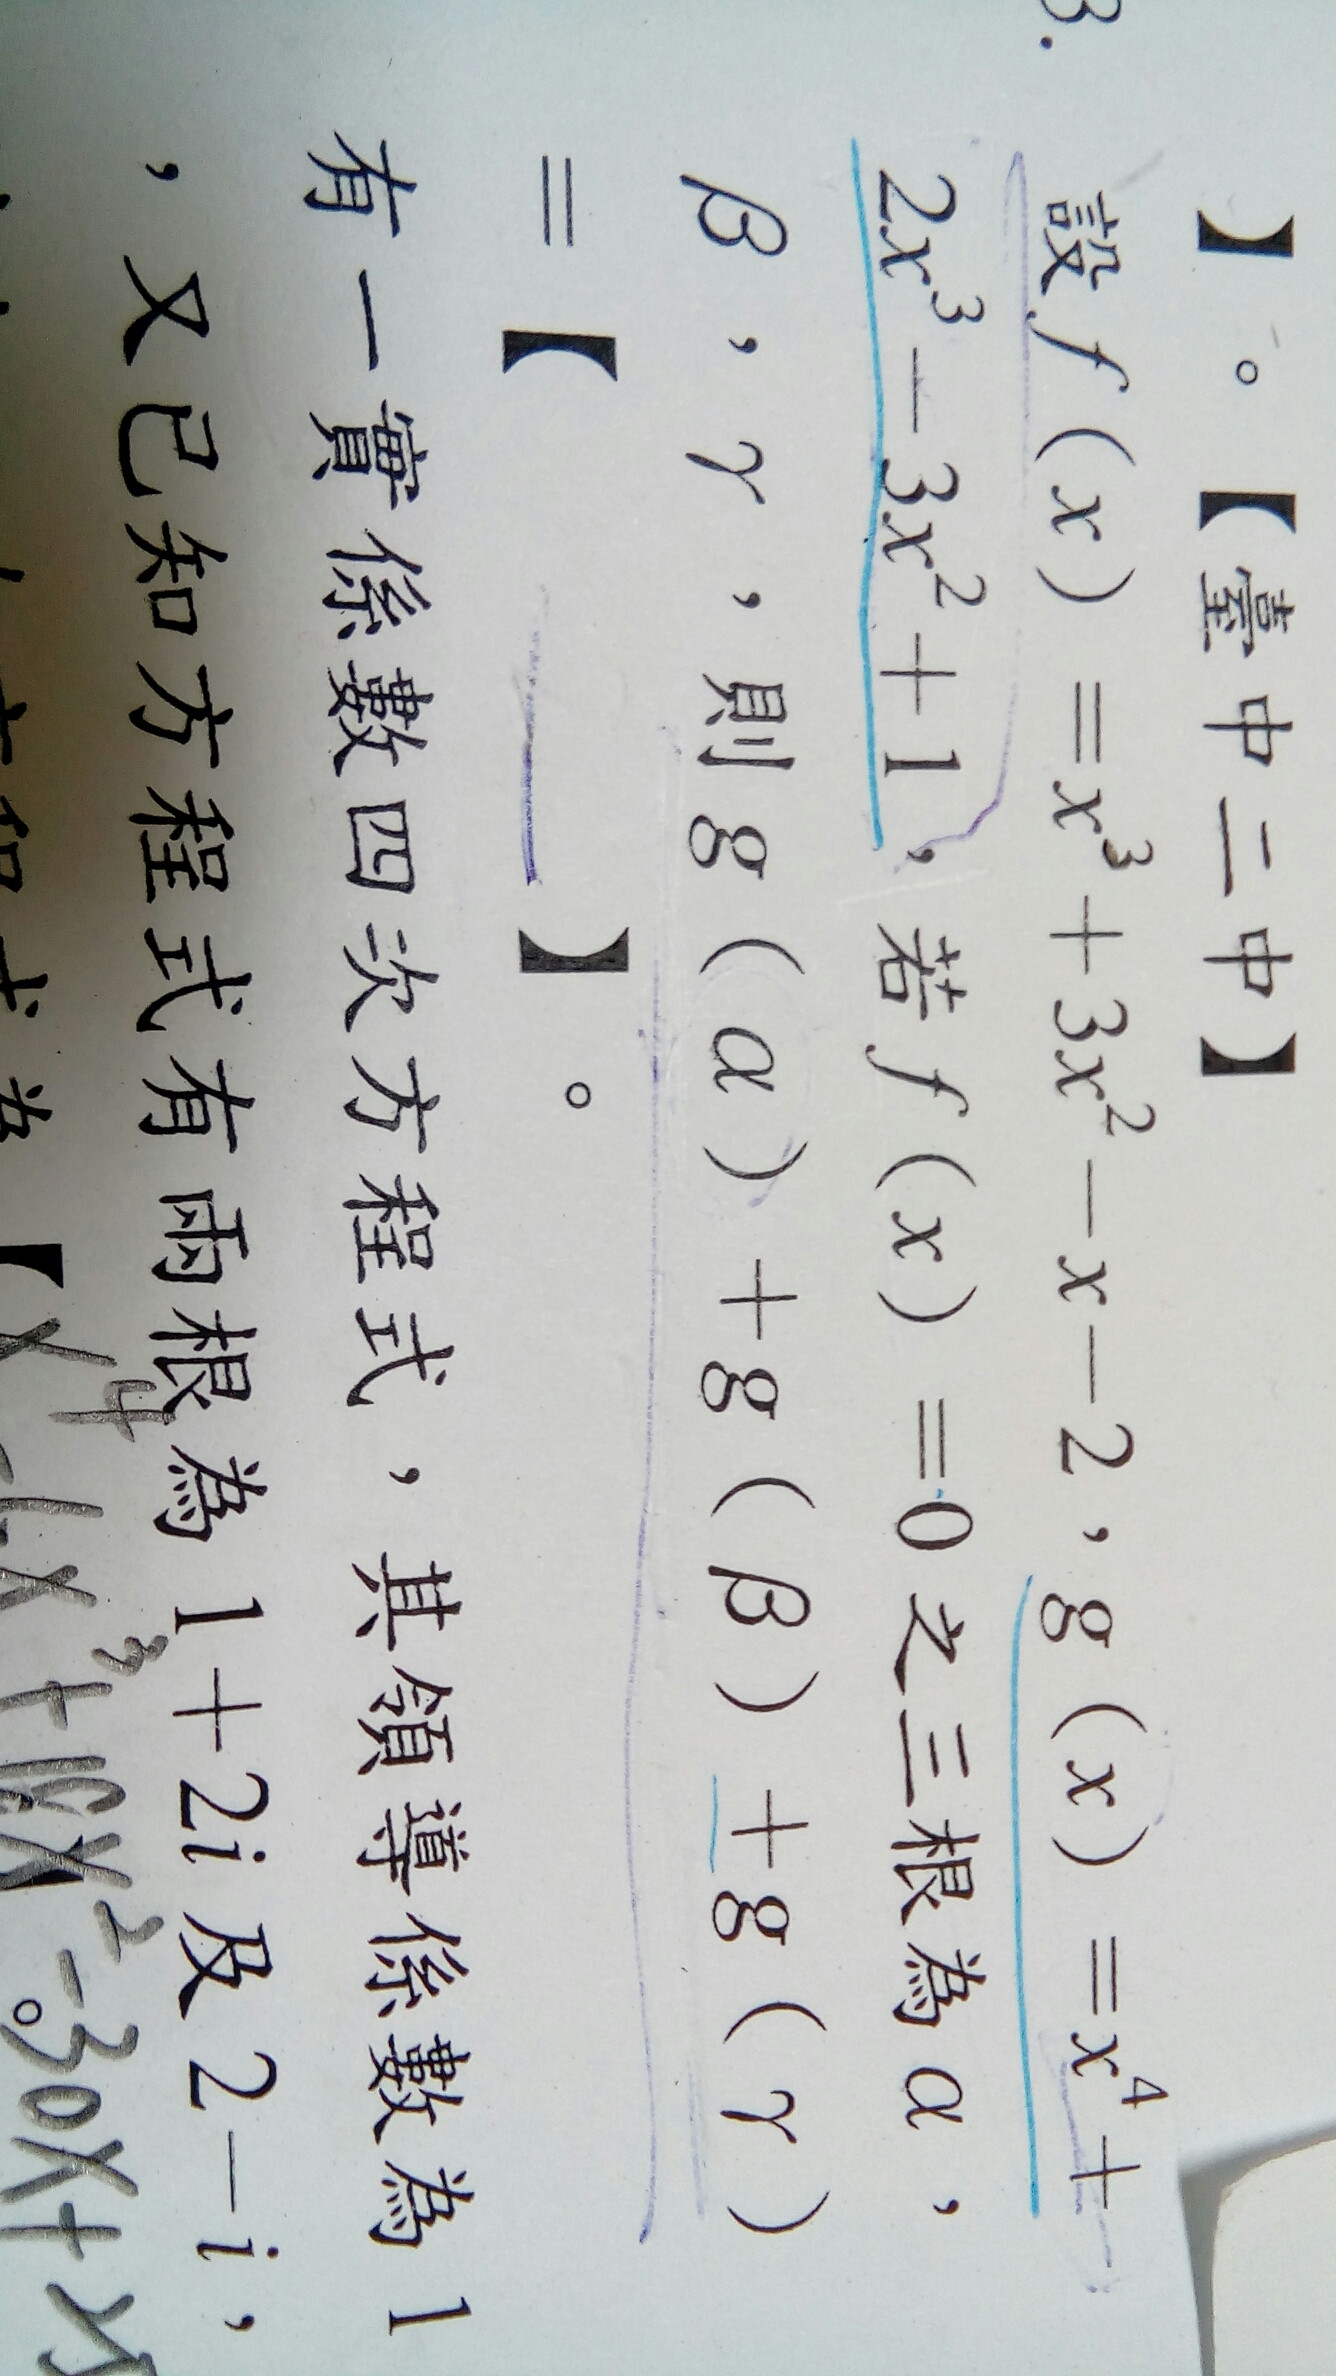 】。【臺中二中】
3. 設f(x)=x³+3x²-x-2,g(x)=x⁴+
2x³-3x²+1,若f(x)=0之三根為α,
β,γ,則g(α)+g(β)+g(γ)
=【 】。
有一實係數四次方程式,其領導係數為1
,又已知方程式有兩根為1+2i及2-i,
【x⁴-6x³+18x²-30x+25】。